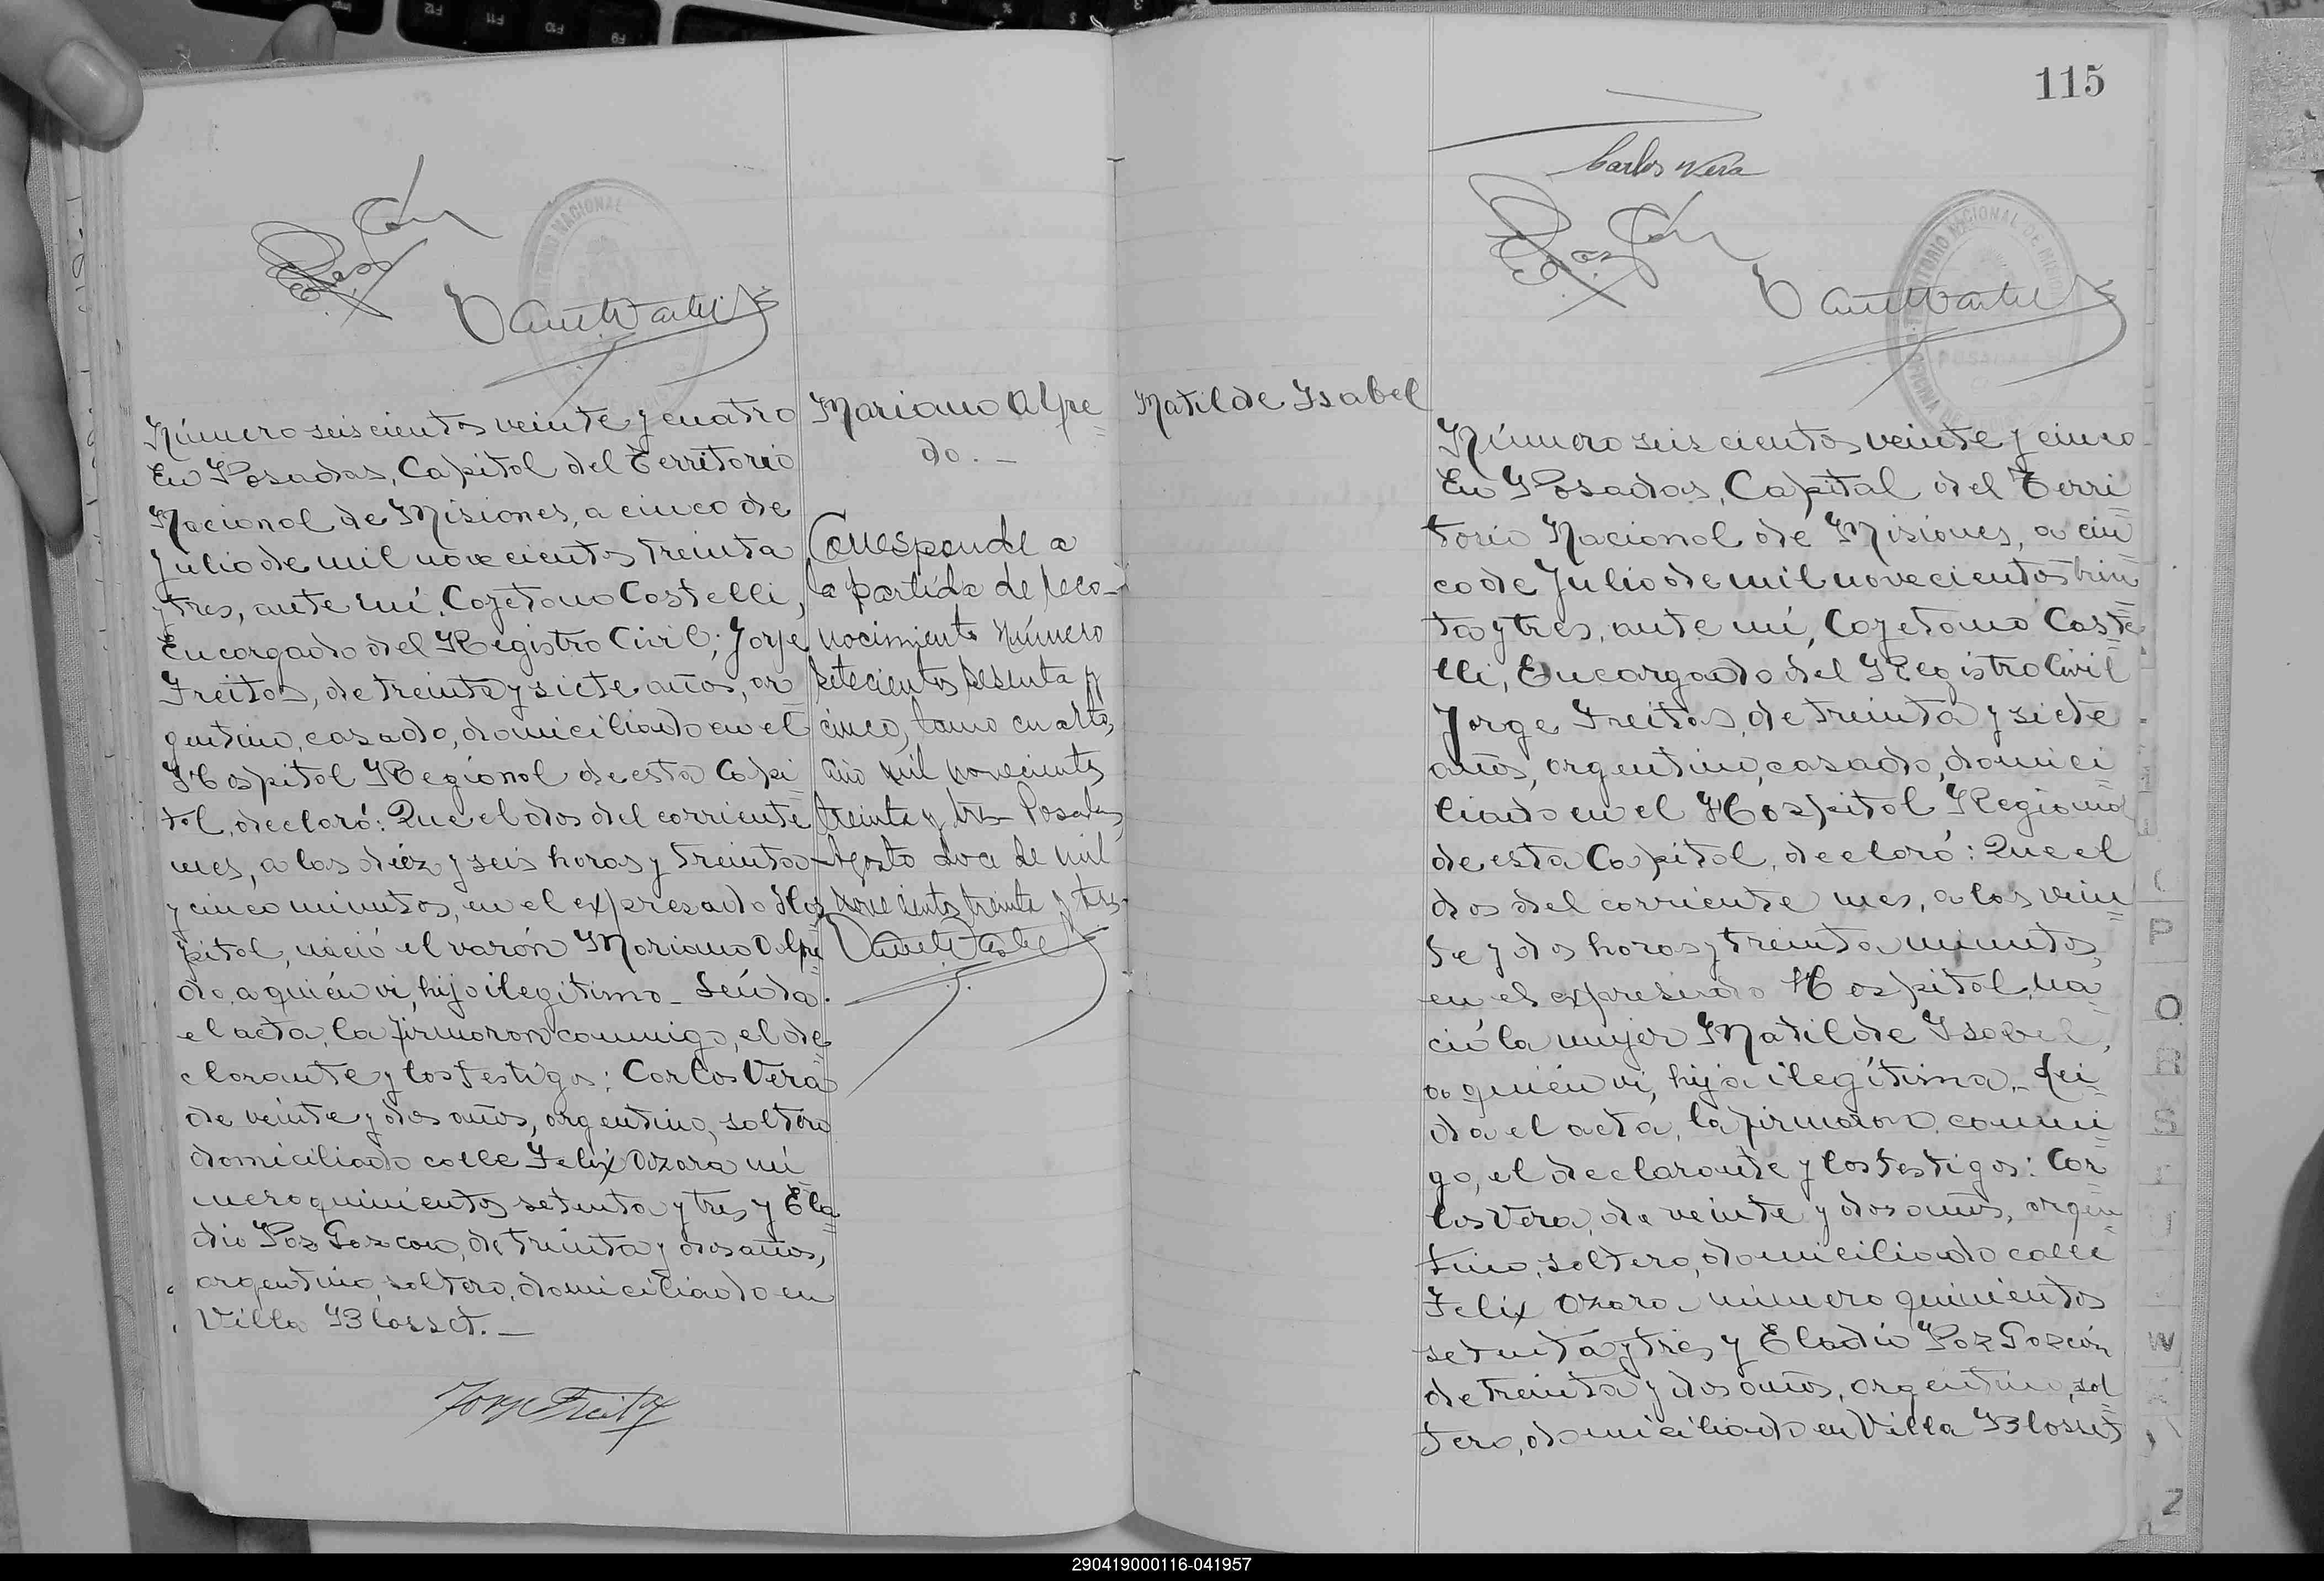 Número seiscientos veinte y cuatro
En Posadas, Capitol del Territorio
Nacional de Misiones, a cinco de
Julio de mil novecientos treinta
y tres, ante mí, Cayetano Castelli,
Encargado del Registro Civil; Jorje
Freitas, de treinta y siete años, ar
gentino, casado, domiciliado en el
Hospitol Regional de esta Capi
tol, declaró: Que el dos del corriente
mes, a las diéz y seis horas y treinta
y cinco minutos, en el expresado Hos
pitol, nació el varón Mariano Alfre
do, a quién vi, hijo ilegítimo_ Leída
el acta, la firmaron conmigo, el de
clarante y los testigos: Carlos Vera
de veinte y dos años, argentino, soltero
domiciliado calle Felix Azara nú
mero quinientos setenta y tres y Ela
dio Paz Gazcon, de treinta y dos años,
argentino, soltero, domiciliado en
Villa Blosset._
Jorge Freitas
Mariano Alfre
do._
Corresponde a
la partida de reco-
nocimiento número
setecientos sesenta y
cinco, tomo cuarto,
año mil novecientos
treinta y tres Posadas,
Agosto doce de mil
novecientos treinta y tres-
Matilde Isabel
115
Carlos Vera
TERRITORIO NACIONAL DE MISIONES
POSADAS
Número seis cientos veinte y cinco
En Posadas, Capital del Terri
torio Nacional de Misiones, a cin
co de Julio de mil novecientos trein
ta y tres, ante mí, Cayetano Caste
lli, Encargado del Registro Civil
Jorge Freitas, de treinta y siete
años, argentino, casado, domici
liado en el Hospitol Regional
de esta Capitol, declaró: Que el
dos del corriente mes, a las vein
te y dos horas y treinta minutos,
en el expresado Hospitol, na
ció la mujer Matilde Isabel,
a quién vi, hija ilegítima._ Leí
da el acta, la firmaron conmi
go, el declarante y los testigos: Car
los Vera, de veinte y dos años, argen
tino, soltero, domiciliado calle
Felix Azara número quinientos
setenta y tres y Eladio Paz Gazcón
de treinta y dos años, argentino, sol
tero, domiciliado en Villa Blosset
P
O
R
S
W
Z
290419000116-041957